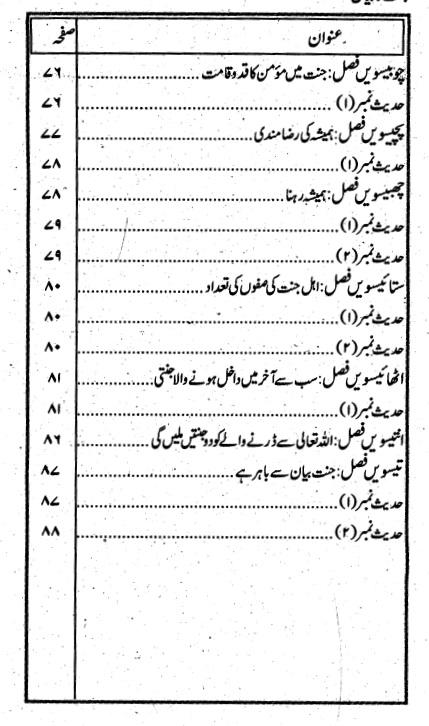 عنوان صفحہ
چوبیسویں فصل: جنت میں مؤمن کا قد و قامت ........ ۷۶
حدیث نمبر (۱) ........ ۷۶
پچیسویں فصل: ہمیشہ کی رضا مندی ........ ۷۷
حدیث نمبر (۱) ........ ۷۸
چھبیسویں فصل: ہمیشہ رہنا ........ ۷۸
حدیث نمبر (۱) ........ ۷۹
حدیث نمبر (۲) ........ ۷۹
ستائیسویں فصل: اہل جنت کی صفوں کی تعداد ........ ۸۰
حدیث نمبر (۱) ........ ۸۰
حدیث نمبر (۲) ........ ۸۰
اٹھائیسویں فصل: سب سے آخر میں داخل ہونے والا جنتی ........ ۸۱
حدیث نمبر (۱) ........ ۸۱
انتیسویں فصل: اللہ تعالی سے ڈرنے والے کو دو جنتیں ملیں گی ۸۶
تیسویں فصل: جنت بیان سے باہر ہے ........ ۸۷
حدیث نمبر (۱) ........ ۸۷
حدیث نمبر (۲) ........ ۸۸